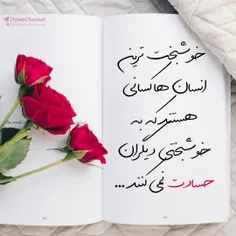 DriweChannel
خوشبخت ترین
انسان ها کسانی
هستند که به
خوشبختی دیگران
حسادت نمی کنند...